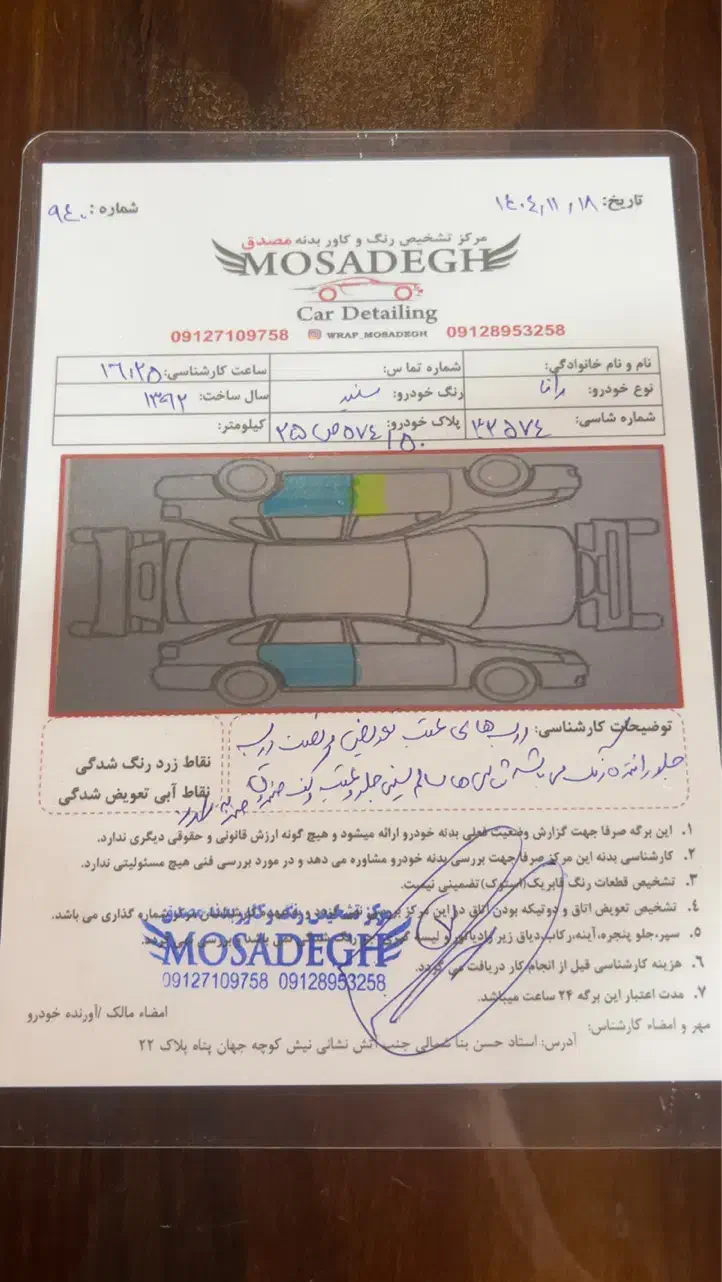 تاریخ: ۱۴۰۴/۱۱/۱۸
شماره: ۹۴۰
مرکز تشخیص رنگ و کاور بدنه مصدق
MOSADEGH
Car Detailing
09127109758 WRAP_MOSADEGH 09128953258
نام و نام خانوادگی: شماره تماس: ساعت کارشناسی: ۱۶:۲۵
نوع خودرو: رانا رنگ خودرو: سفید سال ساخت: ۱۳۹۲
شماره شاسی: ۴۳۵۷۴ پلاک خودرو: ۵۷۴ ص ۲۵ / ۵۰ کیلومتر:
توضیحات کارشناسی: درب های عقب تعویض می باشد درب
جلو راننده رنگ می باشد شاسی ها سالم سینی جلو و عقب کف صندوق ضربه
نقاط زرد رنگ شدگی
نقاط آبی تعویض شدگی
۱. این برگه صرفا جهت گزارش وضعیت فعلی بدنه خودرو ارائه میشود و هیچ گونه ارزش قانونی و حقوقی دیگری ندارد.
۲. کارشناسی بدنه این مرکز صرفا جهت بررسی بدنه خودرو مشاوره می دهد و در مورد بررسی فنی هیچ مسئولیتی ندارد.
۳. تشخیص قطعات رنگ فابریک(استوک)تضمینی نیست.
۴. تشخیص تعویض اتاق و دوتیکه بودن اتاق در این مرکز شماره گذاری می باشد.
۵. سپر،جلو پنجره،آینه،رکاب،دیاق زیر رادیاتور و لیسه گیری
۶. هزینه کارشناسی قبل از انجام کار دریافت می گردد.
۷. مدت اعتبار این برگه ۲۴ ساعت میباشد.
مرکز تشخیص رنگ و کاور بدنه مصدق
MOSADEGH
09127109758 09128953258
مهر و امضاء کارشناس: امضاء مالک /آورنده خودرو
آدرس: استاد حسن بنا شمالی جنب آتش نشانی نبش کوچه جهان پناه پلاک ۲۲